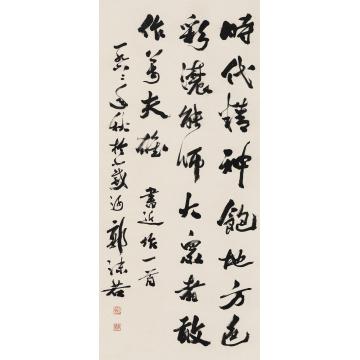 時代精神飽地方色
彩濃能師大衆者敢
作萬夫雄 書近作一首
一九六二年秋於北戴河 郭沫若